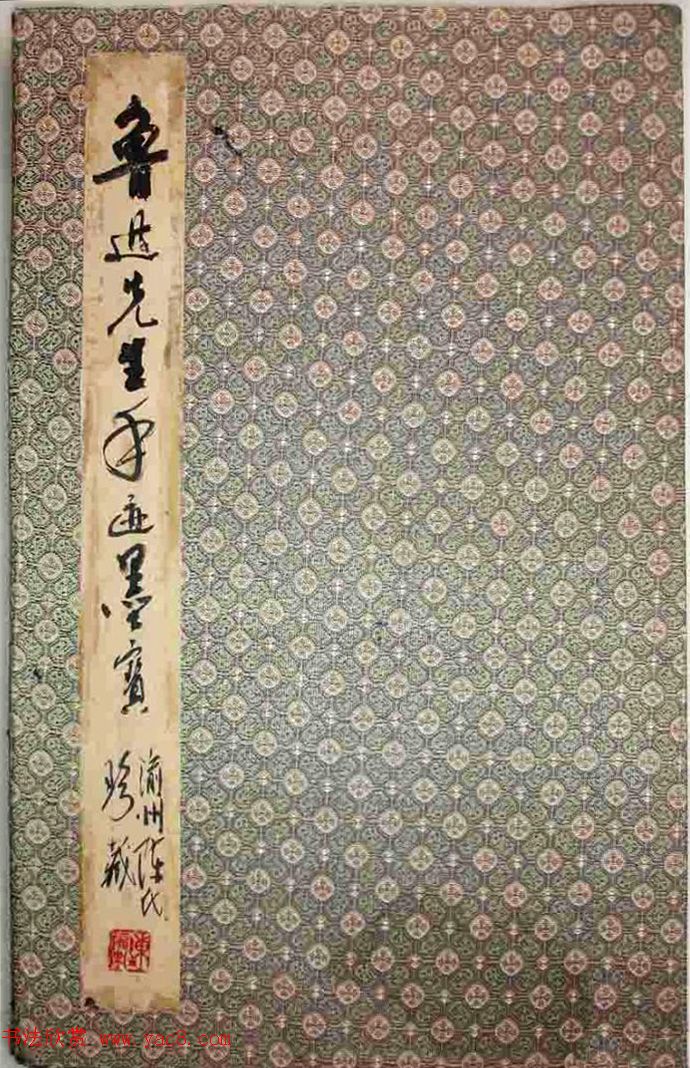 魯迅先生手迹墨寶
渝州陈氏
珍藏
书法欣赏 www.yac8.com